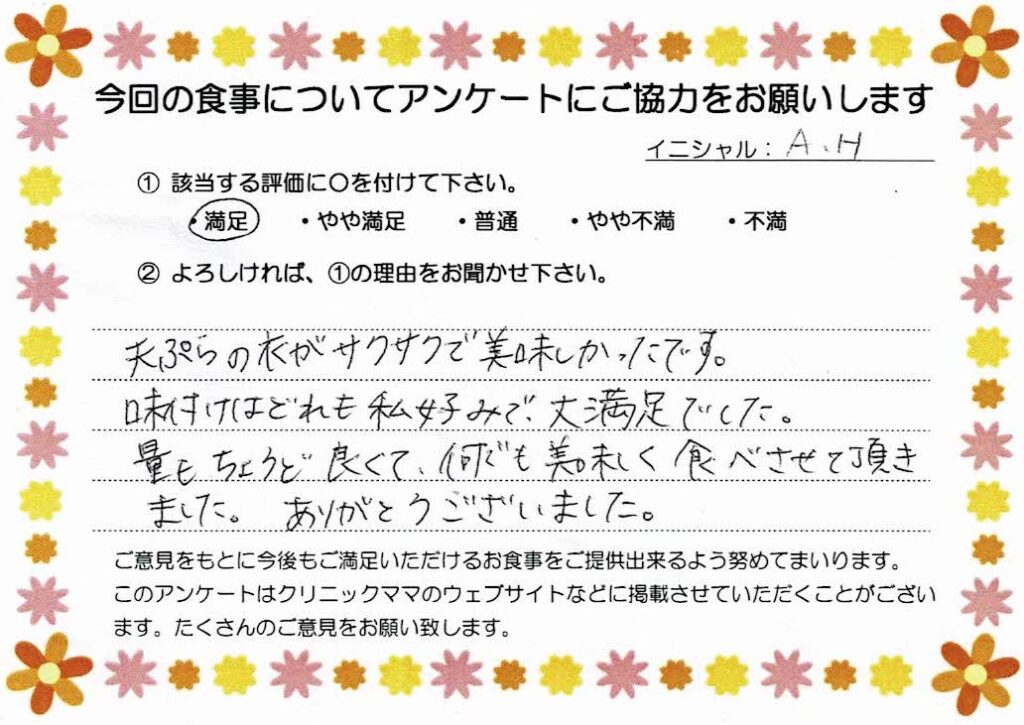 今回の食事についてアンケートにご協力をお願いします
イニシャル：A、H
① 該当する評価に〇を付けて下さい。
・満足 ・やや満足 ・普通 ・やや不満 ・不満
② よろしければ、①の理由をお聞かせ下さい。
天ぷらの衣がサクサクで美味しかったです。
味付けはどれも私好みで、大満足でした。
量もちょうど良くて、何でも美味しく食べさせて頂き
ました。 ありがとうございました。
ご意見をもとに今後もご満足いただけるお食事をご提供出来るよう努めてまいります。
このアンケートはクリニックママのウェブサイトなどに掲載させていただくことがござい
ます。たくさんのご意見をお願い致します。